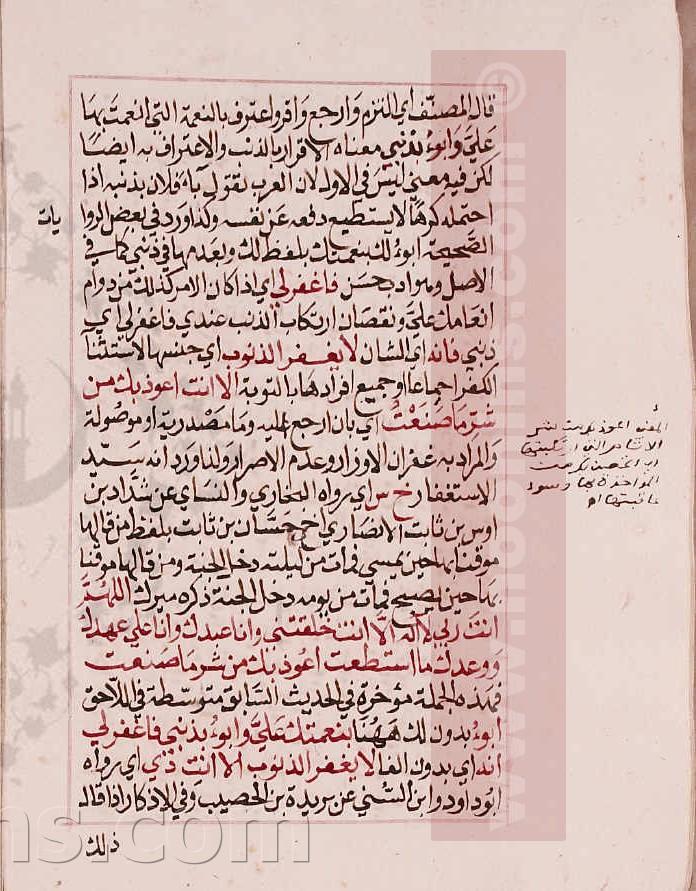 قال المصنف أي التزم وارجع واقر واعترف بالنعمة التي انعمت بها
علي وابوء بذنبي معناه الاقرار بالذنب والاعتراف به ايضا
لكن فيه معني ليس في الاول لان العرب تقول باء فلان بذنبه اذا
احتمله كرها لا يستطيع دفعه عن نفسه ولذا ورد في بعض الروا
يات
الصحيحة ابوء لك بنعمتك بلفظ لك وبعدمها في ذنبي كما في
الاصل وهو ادب حسن فاغفر لي اي اذا كان الامر كذلك من دوام
انعامك علي ونقصان ارتكاب الذنب عندي فاغفر لي اي
ذنبي فانه اي الشان لا يغفر الذنوب اي جنسها لاستثنا
الكفر اجماعا او جميع افرادها بالتوبة الا انت اعوذ بك من
شر ما صنعت اي بان ارجع عليه وما مصدرية او موصولة
والمراد به غفران الاوزار وعدم الاصرار ولذا ورد انه سيد
الاستغفار خ س اي رواه البخاري والنساي عن شداد بن
اوس بن ثابت الانصاري اخ حسان بن ثابت بلفظ من قالها
موقنا بها حين يمسي فمات من ليلته دخل الجنة ومن قالها موقنا
بها حين يصبح فمات من يومه دخل الجنة ذكره ميرك اللهم
انت ربي لا اله الا انت خلقتني وانا عبدك وانا علي عهدك
ووعدك ما استطعت اعوذ بك من شر ما صنعت
فهذه الجملة مؤخرة في الحديث السابق متوسطة في اللاحق
ابوء بدون لك ههنا بنعمتك علي وابوء بذنبي فاغفر لي
انه اي بدون الفا لا يغفر الذنوب الا انت د ي اي رواه
ابو داود وابن السني عن بريدة بن الحصيب وفي الاذكار اذا قال
ذلك
المعنى اعوذ بك من شر
المؤاخذة بها وسوء
عاقبتها